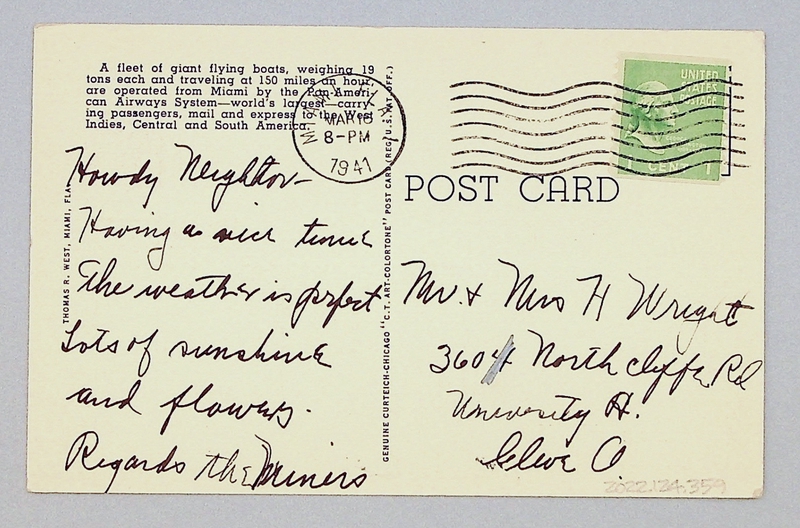 A fleet of giant flying boats, weighing 19
tons each and traveling at 150 miles an hour,
are operated from Miami by the Pan-Ameri-
can Airways System—world's largest—carry-
ing passengers, mail and express to the West
Indies, Central and South America.
MIAMI
MAR 18
8-PM
1941
UNITED
STATES
POSTAGE
1 CENT 1
THOMAS R. WEST, MIAMI, FLA.
GENUINE CURTEICH-CHICAGO "C.T. ART-COLORTONE" POST CARD (REG. U.S. PAT. OFF.)
POST CARD
Howdy Neighbor—
Having a nice time
The weather is perfect
Lots of sunshine
and flowers.
Regards the Miners
Mr. & Mrs H Wright
3604 Northcliffe Rd
University H.
Cleve O
2022.124.359